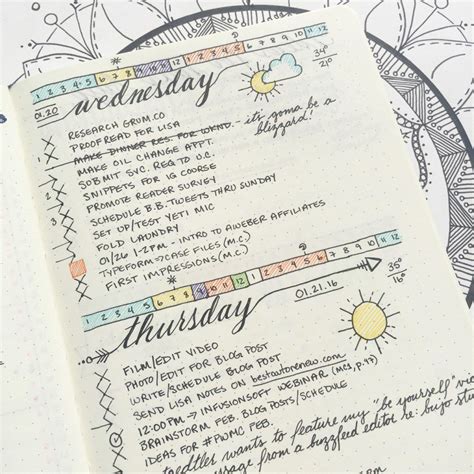 1 2 3 4 5 6 7 8 9 10 11 12 1 2 3 4 5 6 7 8 9 10 11 12
01.20
wednesday
34°
21°
RESEARCH GRUM.CO
PROOFREAD FOR LISA
MAKE DINNER RES. FOR WKND. - it's gonna be a
blizzard!
MAKE OIL CHANGE APPT.
SUBMIT SVC. REQ TO U.C.
SNIPPETS FOR IG COURSE
PROMOTE READER SURVEY
SCHEDULE B.B. TWEETS THRU SUNDAY
SET UP/TEST YETI MIC
FOLD LAUNDRY
01/26 1-2PM - INTRO TO AWEBER AFFILIATES
TYPEFORM => CASE FILES (M.C.)
FIRST IMPRESSIONS (M.C.)
1 2 3 4 5 6 7 8 9 10 11 12 1 2 3 4 5 6 7 8 9 10 11 12
thursday
01.21.16
35°
16°
FILM/EDIT VIDEO
PHOTO/EDIT FOR BLOG POST
WRITE/SCHEDULE BLOG POST
SEND LISA NOTES ON bestautorenew.com
12:00PM => INFUSIONSOFT WEBINAR (MCS, p.97)
BRAINSTORM FEB. BLOG POSTS/SCHEDULE
IDEAS FOR #PWMC FEB.
wants to feature my "be yourself"
message from a buzzfeed editor re: bujo